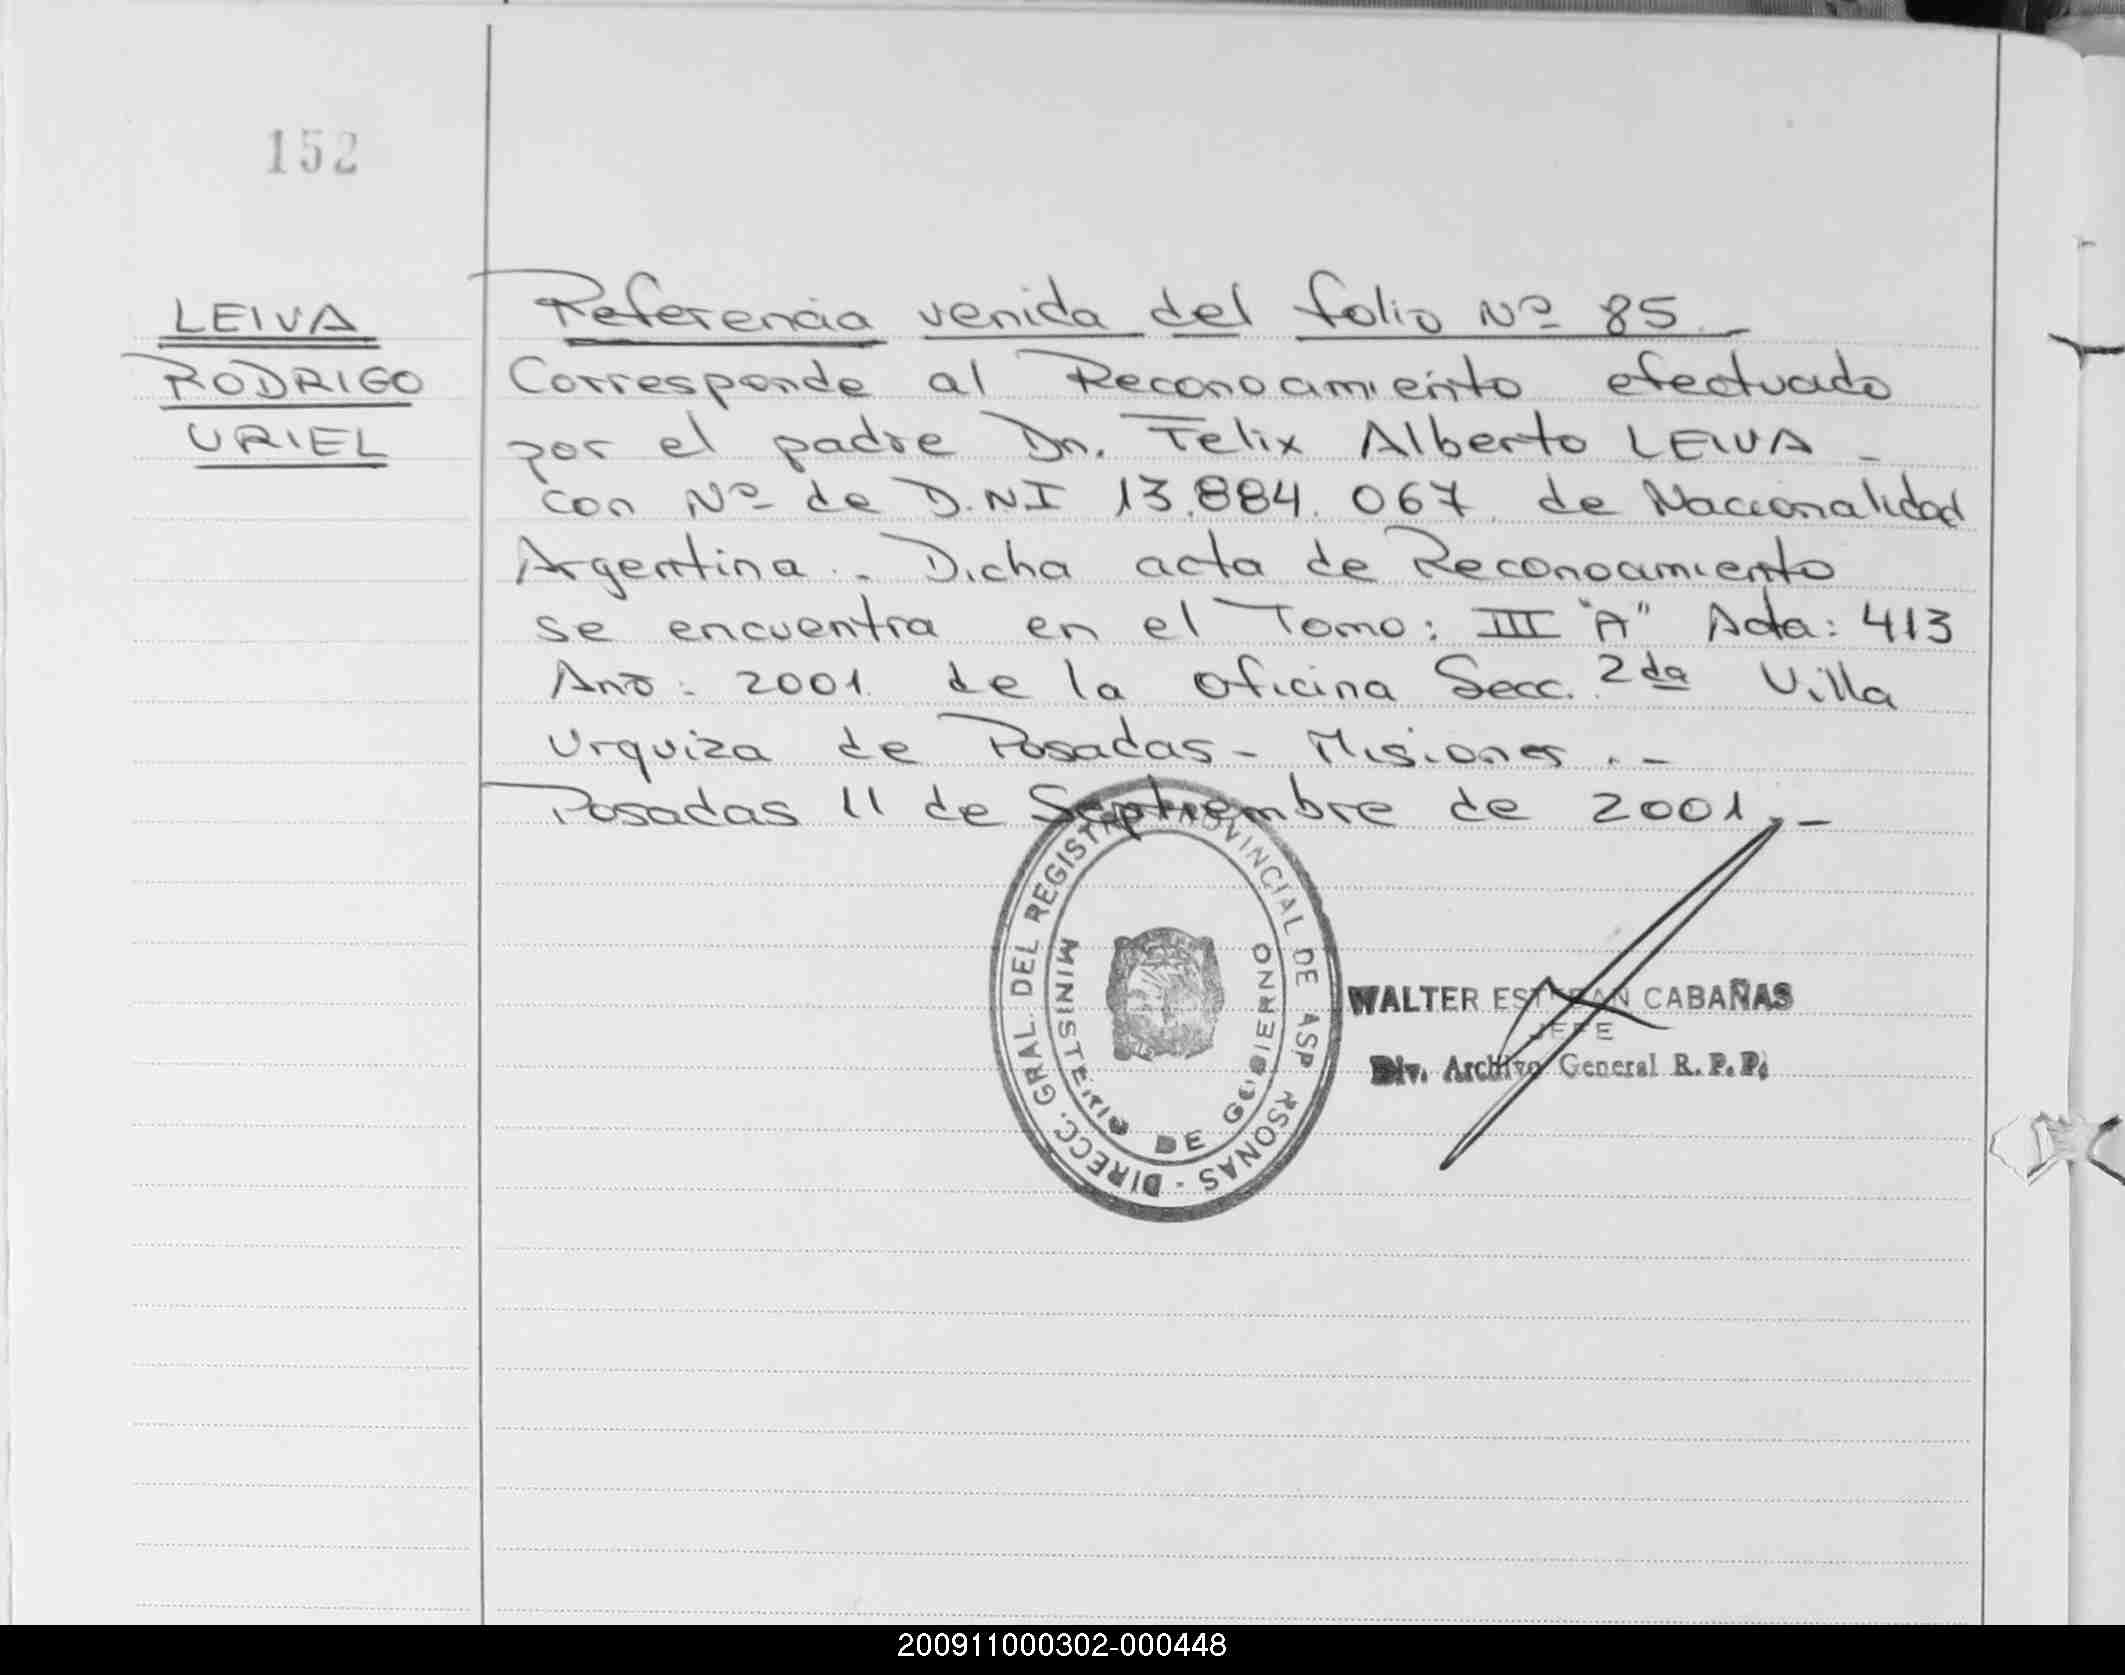 152
LEIVA
RODRIGO
URIEL
Referencia venida del folio Nº 85
Corresponde al Reconocimiento efectuado
por el padre Dn. Felix Alberto LEIVA -
con Nº de D.NI 13.884.067 de Nacionalidad
Argentina.- Dicha acta de Reconocimiento
se encuentra en el Tomo: III "A" Acta: 413
Año: 2001 de la oficina Secc. 2da Villa
Urquiza de Posadas - Misiones.-
Posadas 11 de Septiembre de 2001.-
DIRECC. GRAL. DEL REGISTRO PROVINCIAL DE ASP RSONAS -
MINISTERIO DE GOBIERNO
WALTER ESTEBAN CABAÑAS
JEFE
Div. Archivo General R. P. P.
200911000302-000448